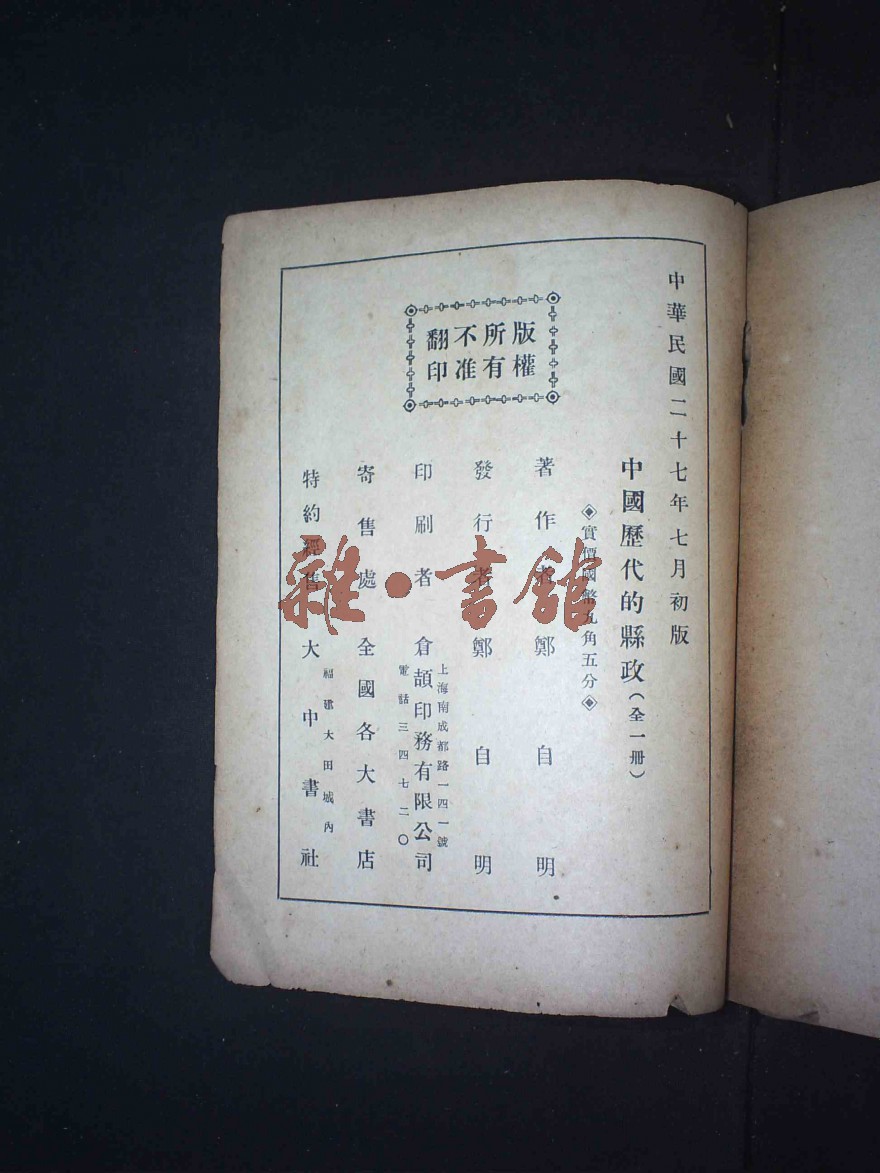 中華民國二十七年七月初版
中國歷代的縣政（全一冊）
◈實價國幣九角五分◈
版權
所有
不准
翻印
著作者鄭自明
發行者鄭自明
印刷者倉頡印務有限公司
上海南成都路一四一號
電話三四七二〇
寄售處全國各大書店
特約經售大中書社
福建大田城內
雜•書館